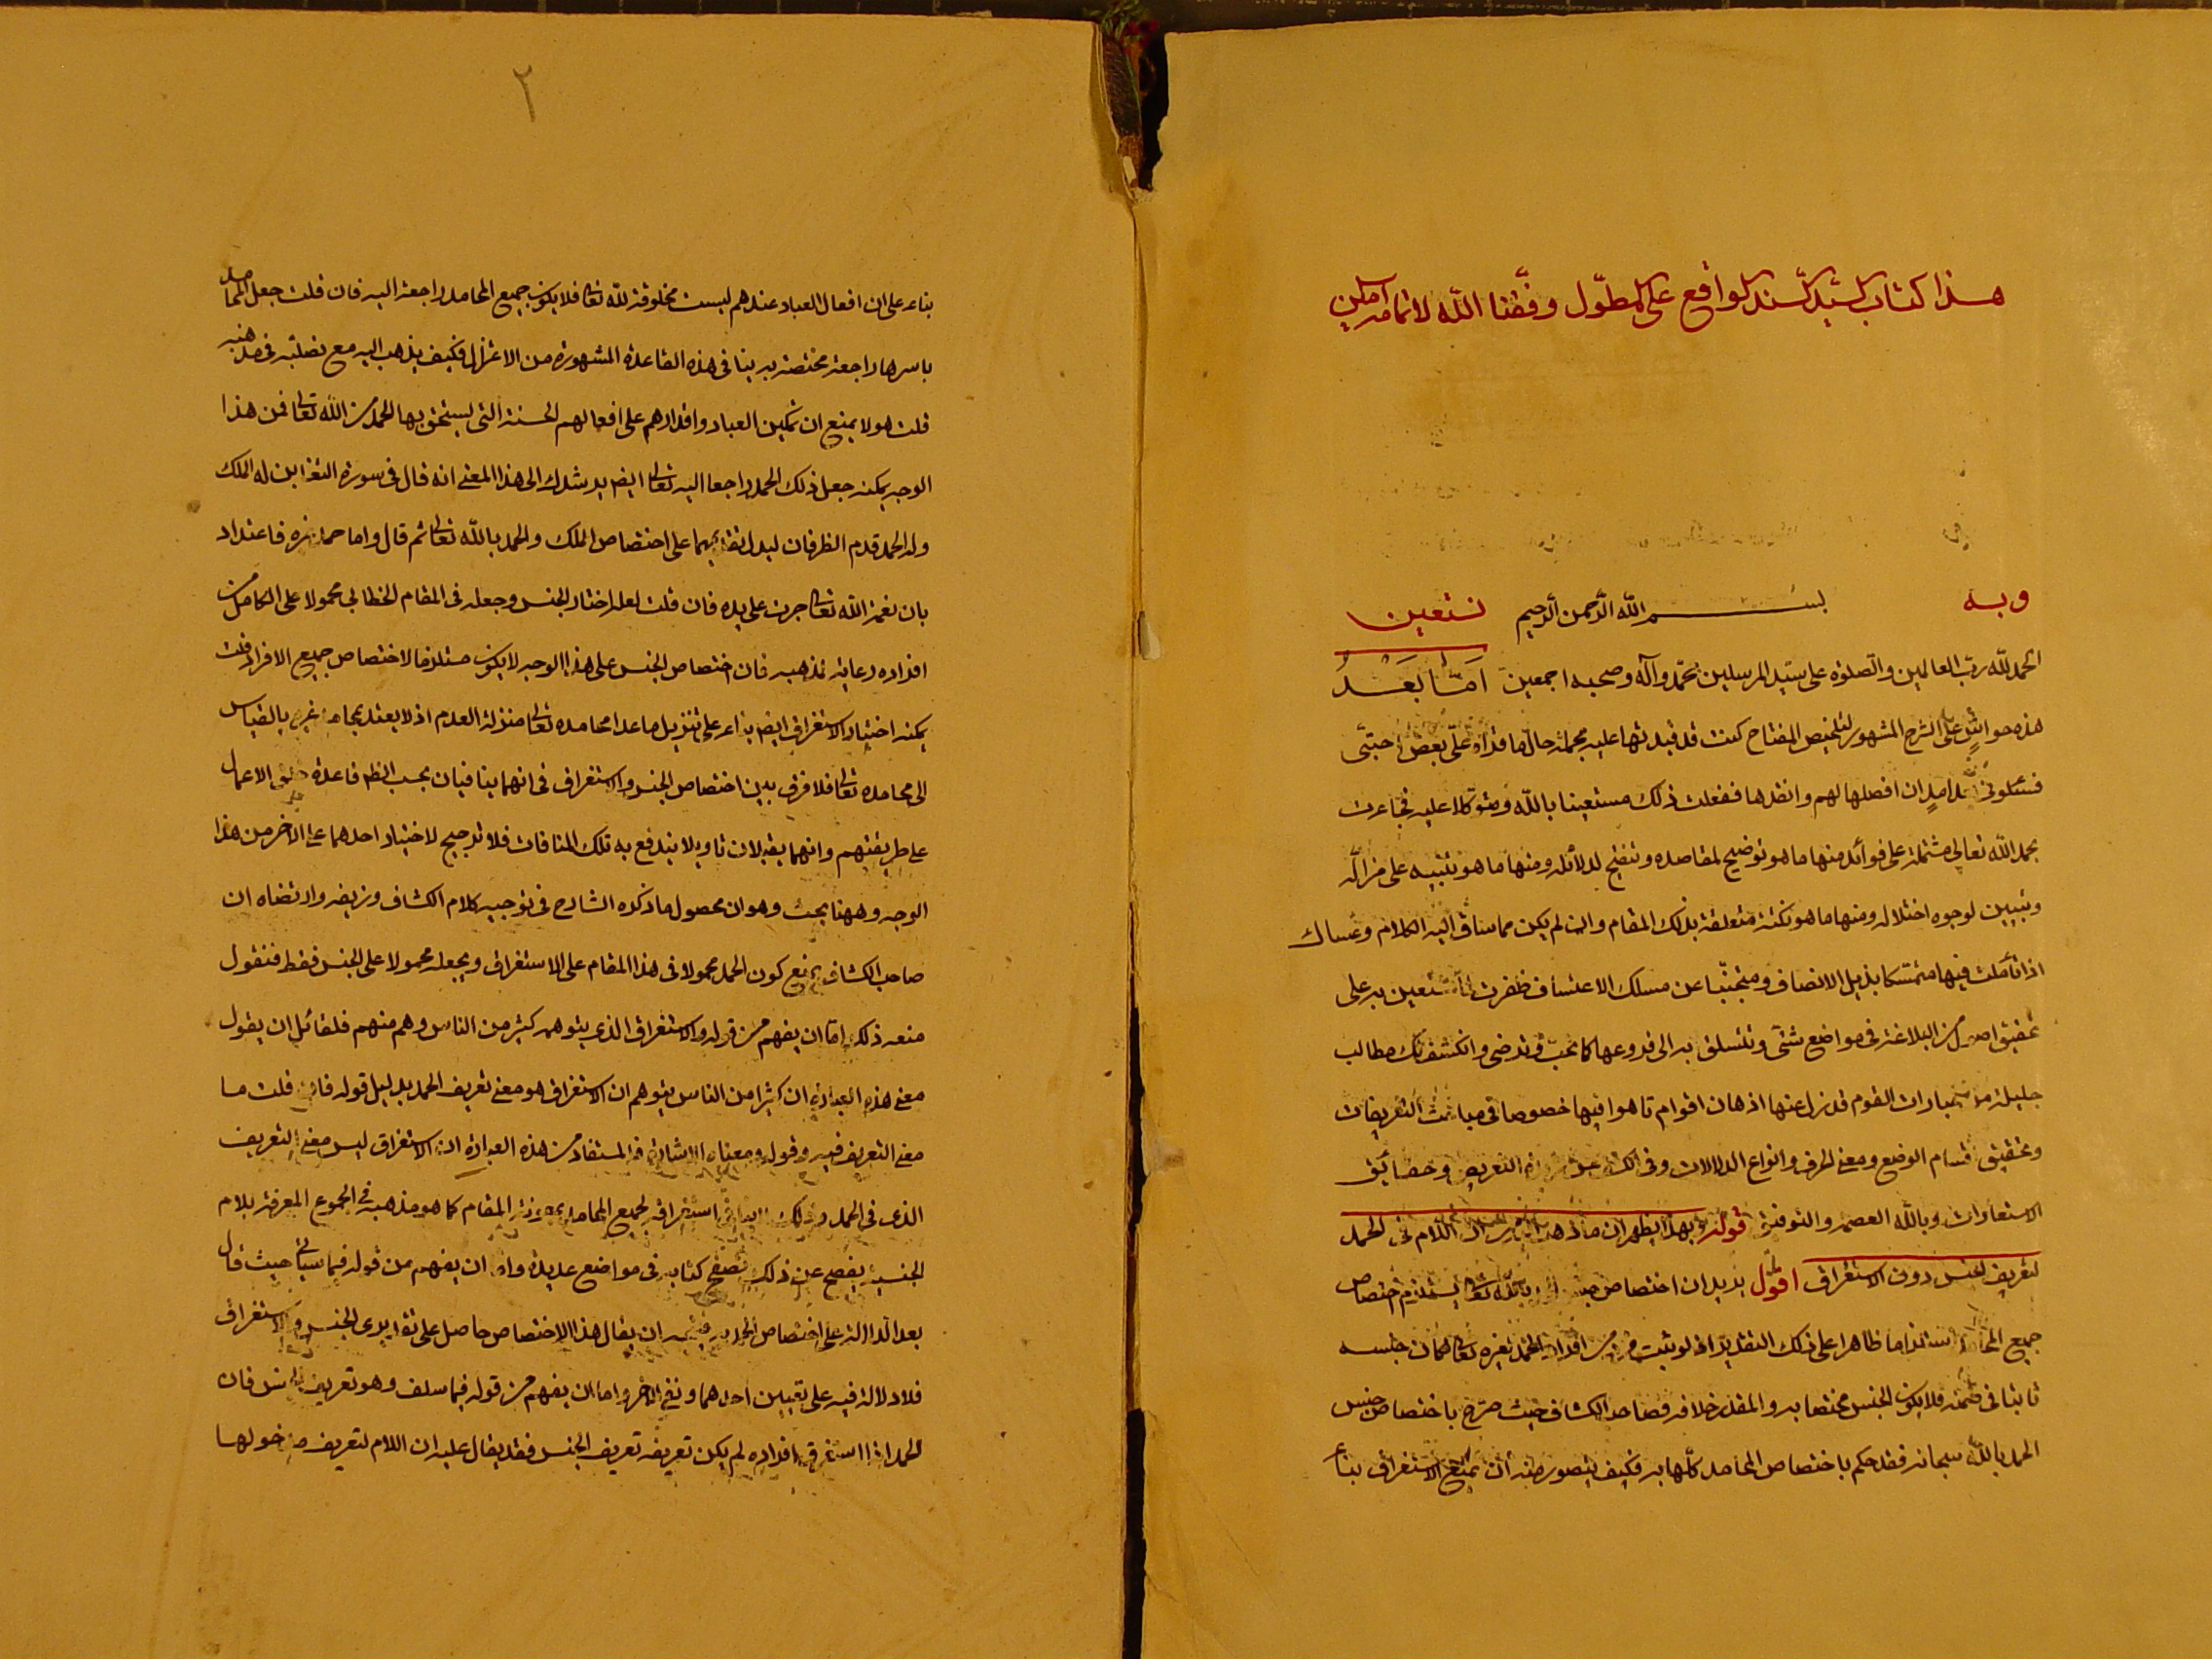 هذا كتاب السيد السند الواقع على المطوّل وفّقنا الله لاتمامه آمين
وبه بسم الله الرحمن الرحيم نستعين
الحمد لله رب العالمين والصلوة على سيّد المرسلين محمّد وآله وصحبه اجمعين امّا بَعْدُ
هذه حواشٍ على الشرح المشهور لتلخيص المفتاح كنت قد قيدتها عليه مجملة حال ما قرأه علىّ بعض احبّتى
فسئلونى ان افصلها لهم وانقدها ففعلت ذلك مستعينا بالله ومتوكلا عليه فجاءت
بحمد الله تعالى مشتملة على فوائد منها ما هو توضيح لمقاصده وتنقيح لدلائله ومنها ما هو تنبيه على مزالّه
وتبيين لوجوه اختلاله ومنها ما هو نكتة متعلقة بذلك المقام وان لم يكن مما ساق اليه الكلام وعساك
اذا تأملت فيها متمسّكا بذيل الانصاف ومتجنّبا عن مسلك الاعتساف ظفرت بما تستعين به على
تحقيق اصول من البلاغة فى مواضع شتّى وتتسلق به الى فروعها كما تحبّ وترضى وانكشف لك مطالب
جليلة من عبارات القوم قد زل عنها اذهان اقوام تاهوا فيها خصوصا فى مباحث التعريفات
وتحقيق اقسام الوضع ومعنى الحرف وانواع الدلالات وفى الكشف عن التعريض وحقائق
الاستعارات وبالله العصمة والتوفيق قوله وبهذا يظهر ان ما ذهب اليه من ان اللام فى الحمد
لتعريف الجنس دون الاستغراق اقول يريد ان اختصاص جنس الحمد بالله تعالى يستلزم اختصاص
جميع المحامد استلزاما ظاهرا على ذلك التقدير اذ لو ثبت فرد من افراد الحمد لغيره تعالى لكان جنسه
ثابتا فى ضمنه فلا يكون الجنس مختصا به والمقدر خلافه فصاحب الكشاف حيث صرّح باختصاص جنس
الحمد بالله سبحانه فقد حكم باختصاص المحامد كلّها به فكيف يتصور منه ان يمنع الاستغراق بناء
٢
بناء على ان افعال العباد عندهم ليست مخلوقة لله تعالى فلا يكون جميع المحامد راجعة اليه فان قلت جعل المحامد
باسرها راجعة مختصة به ينافى هذه القاعدة المشهورة من الاعتزال فكيف يذهب اليه مع تصلبّه فى مذهبه
قلت هو لا يمنع ان تمكين العباد واقدارهم على افعالهم الحسنة التى يستحق بها الحمد من الله تعالى فمن هذا
الوجه يمكنه جعل ذلك الحمد راجعا اليه تعالى ايضا يرشدك الى هذا المعنى انه قال فى سورة التغابن له الملك
وله الحمد قدم الظرفان ليدل بتقديمهما على اختصاص الملك والحمد بالله تعالى ثم قال واما حمد غيره فاعتداد
بان نعمة الله تعالى جرت على يده فان قلت لعله اختار الجنس وجعله فى المقام الخطابى محمولا على الكامل من
افراده رعاية لمذهبه فان اختصاص الجنس على هذا الوجه لا يكون مستلزما لاختصاص جميع الافراد قلت
يمكنه اختيار الاستغراق ايضا بناء على تنزيل ما عدا محامده تعالى منزلة العدم اذ لا يعتد بمحامد غيره بالقياس
الى محامده تعالى فلا فرق بين اختصاص الجنس والاستغراق فى انهما ينافيان بحسب الظاهر قاعدة خلق الاعمال
على طريقتهم وانهما يقبلان تاويلا يندفع به تلك المنافات فلا ترجيح لاختيار احدهما على الآخر من هذا
الوجه وههنا بحث وهو ان محصول ما ذكره الشارح فى توجيه كلام الكشاف وزيفه وارتضاه ان
صاحب الكشاف يمنع كون الحمد محمولا فى هذا المقام على الاستغراق ويجعله محمولا على الجنس فقط فنقول
منعه ذلك اما ان يفهم من قوله والاستغراق الذى يتوهمه كثير من الناس وهم منهم فلقائل ان يقول
معنى هذه العبارة ان كثيرا من الناس يتوهم ان الاستغراق هو معنى تعريف الحمد بدليل قوله فان قلت ما
معنى التعريف فيه وقوله ومعناه الاشارة فالمستفاد من هذه العبارة ان الاستغراق ليس معنى التعريف
الذى فى الحمد وذلك لا ينافى استغراقه لجميع المحامد بمعونة المقام كما هو مذهبه فى الجموع المعرفة بلام
الجنس يفصح عن ذلك تصفح كتابه فى مواضع عديدة واما ان يفهم من قوله فيما سيأتى حيث قال
بعد الدلالة على اختصاص الحمد به فيتجه ان يقال هذا الاختصاص حاصل على تقديرى الجنس والاستغراق
فلا دلالة فيه على تعيين احدهما ونفى الآخر واما ان يفهم من قوله فيما سلف وهو تعريف الجنس فان
الحمد اذا استغرق افراده لم يكن تعريفه تعريف الجنس فقد يقال عليه ان اللام لتعريف مدخولها